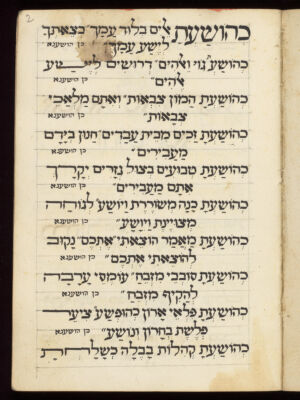 2
כהושעת אלים בלוד עמך בצאתך
לישע עמך כן הושענא
כהושעת גוי ואלהים דרושים לישע
אלהים כן הושענא
כהושעת המון צבאות ואתם מלאכי
צבאות כן הושענא
כהושעת זכים מבית עבדים חנון בידם
מעבידים כן הושענא
כהושעת טבועים בצול גזרים יקרך
אתם מעבירים כן הושענא
כהושעת כנה משוררת ויושע לגוחה
מצויינת ויושע כן הושענא
כהושעת מאמר הוצאתי אתכם נקוב
להוצאתי אתכם כן הושענא
כהושעת סובבי מזבח עומסי ערבה
להקיף מזבח כן הושענא
כהושעת פלאי ארון כהופשע ציער
פלשת בחרון ונושע כן הושענא
כהושעת קהלות בבלה שלחת